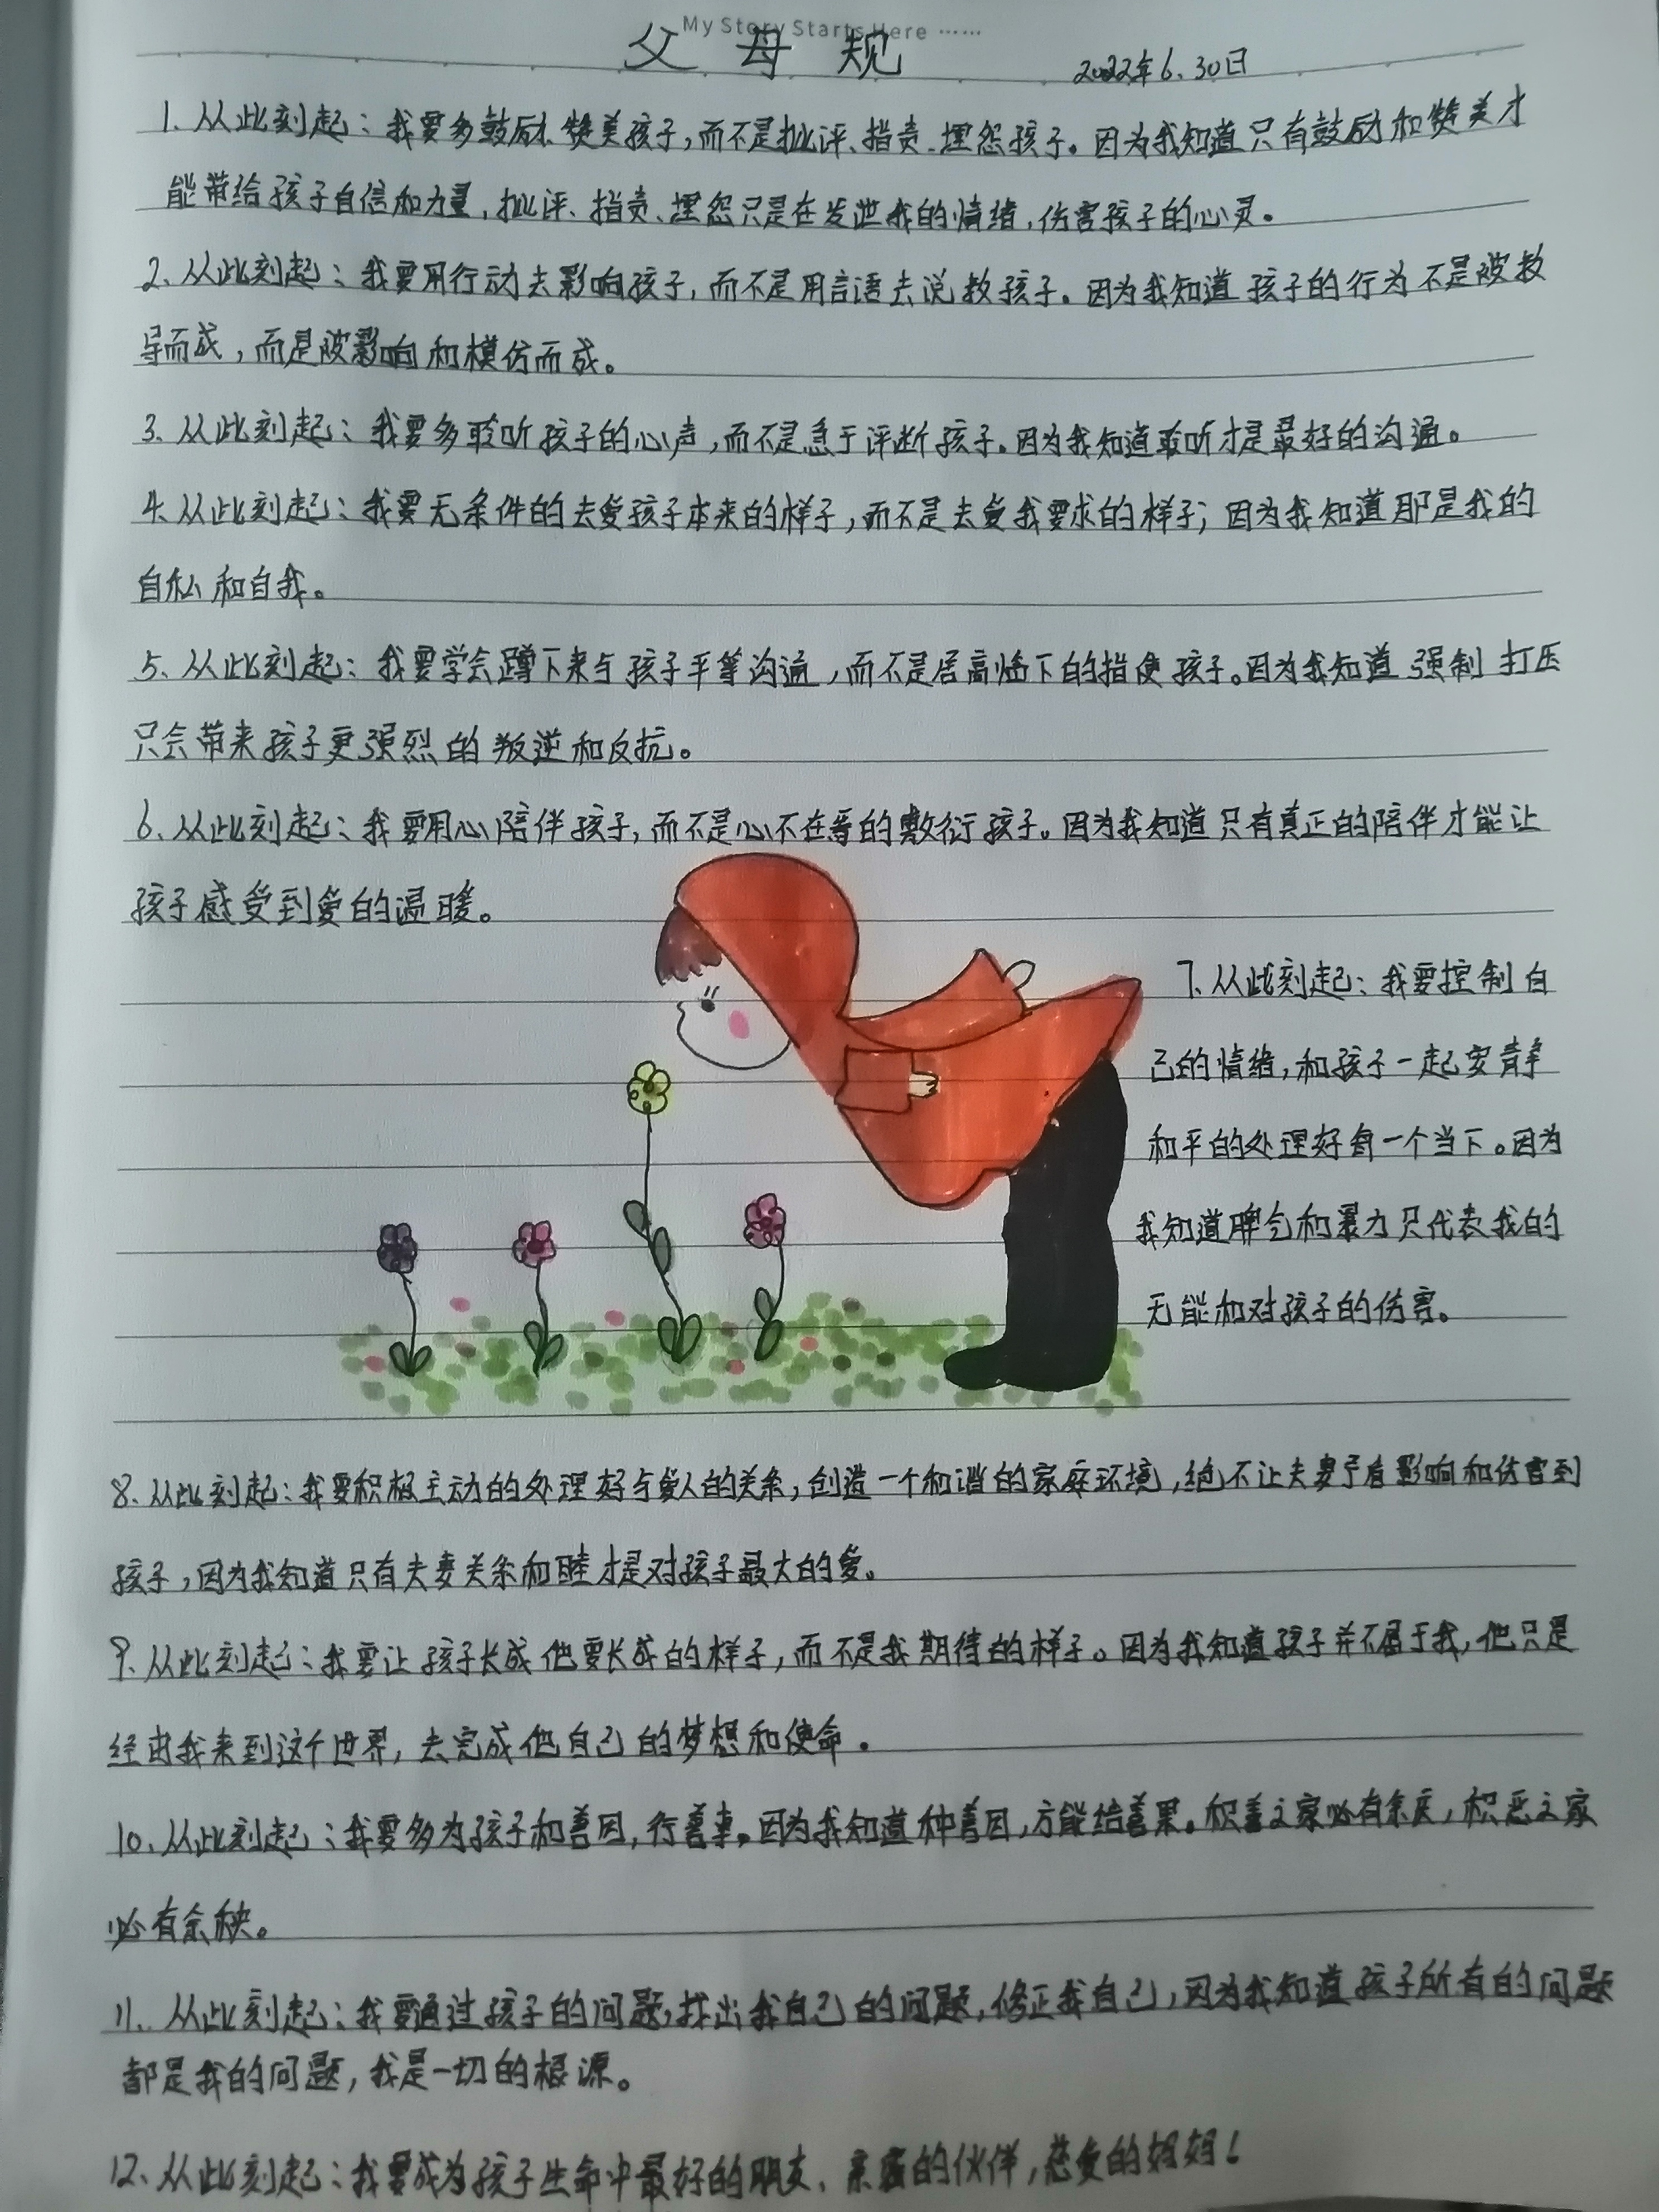 My Story Starts Here ……
父母规
2022年6.30日
1. 从此刻起：我要多鼓励、赞美孩子，而不是批评、指责、埋怨孩子。因为我知道只有鼓励和赞美才
能带给孩子自信和力量，批评、指责、埋怨只是在发泄我的情绪，伤害孩子的心灵。
2、从此刻起：我要用行动去影响孩子，而不是用言语去说教孩子。因为我知道孩子的行为不是被教
导而成，而是被影响和模仿而成。
3. 从此刻起：我要多聆听孩子的心声，而不是急于评断孩子。因为我知道聆听才是最好的沟通。
4. 从此刻起：我要无条件的去爱孩子本来的样子，而不是去爱我要求的样子；因为我知道那是我的
自私和自我。
5、从此刻起：我要学会蹲下来与孩子平等沟通，而不是居高临下的指使孩子。因为我知道强制打压
只会带来孩子更强烈的叛逆和反抗。
6、从此刻起：我要用心陪伴孩子，而不是心不在焉的敷衍孩子。因为我知道只有真正的陪伴才能让
孩子感受到爱的温暖。
7. 从此刻起：我要控制自
己的情绪，和孩子一起安静
和平的处理好每一个当下。因为
我知道脾气和暴力只代表我的
无能和对孩子的伤害。
8. 从此刻起：我要积极主动的处理好与爱人的关系，创造一个和谐的家庭环境，绝不让夫妻矛盾影响和伤害到
孩子，因为我知道只有夫妻关系和睦才是对孩子最大的爱。
9. 从此刻起：我要让孩子长成他要长成的样子，而不是我期待的样子。因为我知道孩子并不属于我，他只是
经由我来到这个世界，去完成他自己的梦想和使命。
10、从此刻起：我要多为孩子和善因，行善事。因为我知道种善因，方能结善果。积善之家必有余庆，积恶之家
必有余秧。
11. 从此刻起：我要通过孩子的问题，找出我自己的问题，修正我自己，因为我知道孩子所有的问题
都是我的问题，我是一切的根源。
12、从此刻起：我要成为孩子生命中最好的朋友、亲密的伙伴，慈爱的妈妈！